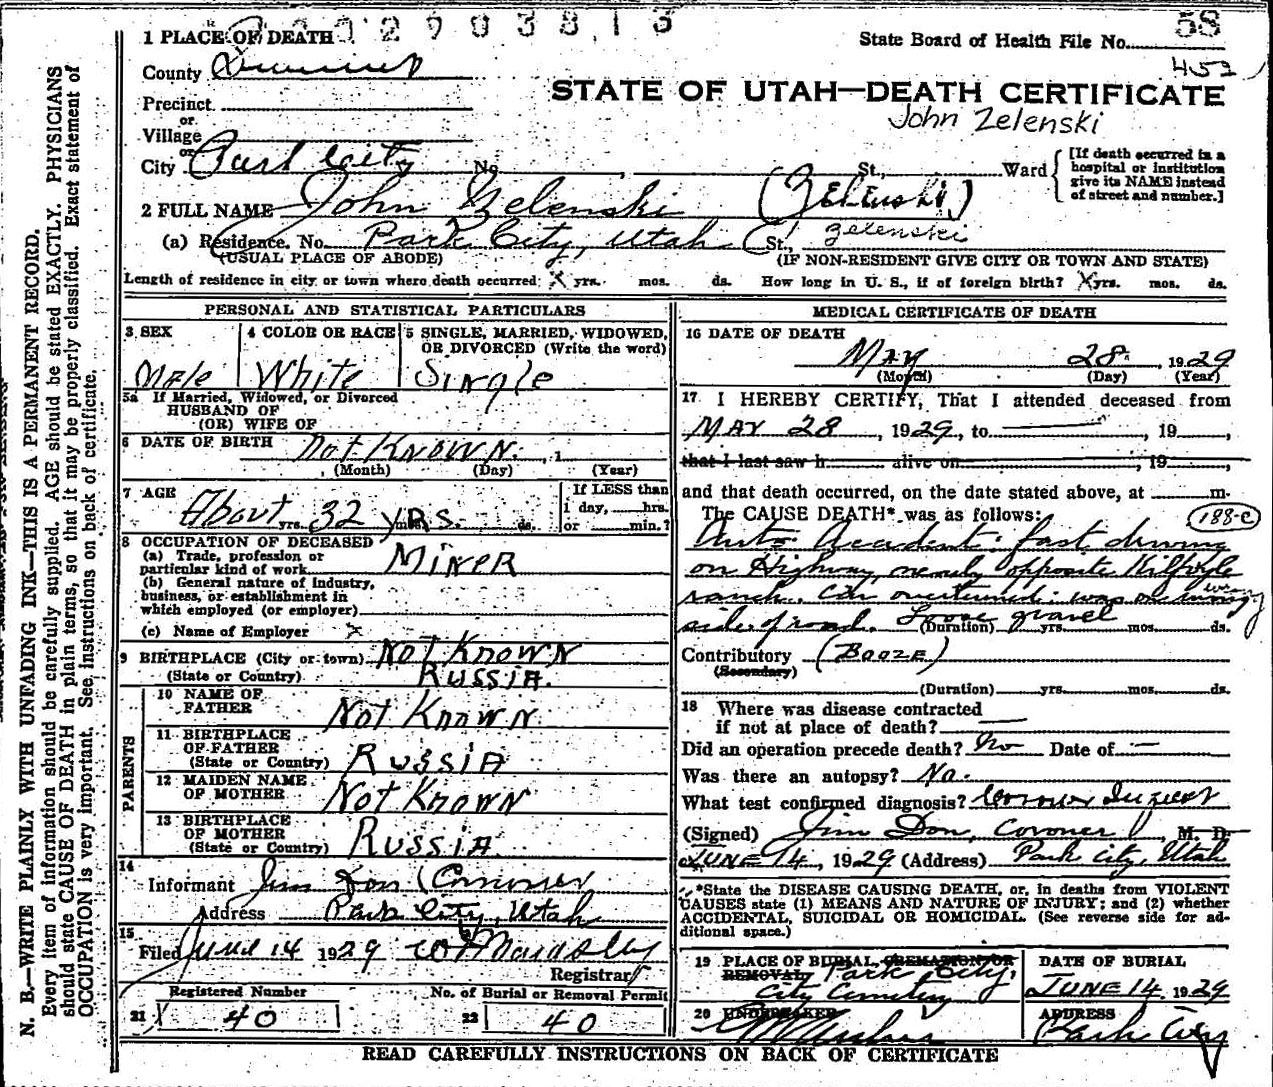 58
State Board of Health File No.
452
1 PLACE OF DEATH
County Summit
STATE OF UTAH—DEATH CERTIFICATE
John Zelenski
Precinct
or
Village
or
City Park City No. , St., Ward
[If death occurred in a
hospital or institution
give its NAME instead
of street and number.]
2 FULL NAME John Zelenski (ZELEnSKi)
(a) Residence. No. Park City, Utah St., Zelenski
(USUAL PLACE OF ABODE) (IF NON-RESIDENT GIVE CITY OR TOWN AND STATE)
Length of residence in city or town where death occurred x yrs. mos. ds. How long in U. S., if of foreign birth? x yrs. mos. ds.
PERSONAL AND STATISTICAL PARTICULARS
3 SEX
Male
4 COLOR OR RACE
White
5 SINGLE, MARRIED, WIDOWED,
OR DIVORCED (Write the word)
Single
5a If Married, Widowed, or Divorced
HUSBAND OF
(OR) WIFE OF
6 DATE OF BIRTH Not Known , 1
(Month) (Day) (Year)
7 AGE
About yrs. 32 YRS. mos. ds.
If LESS than
1 day, hrs.
or min.?
8 OCCUPATION OF DECEASED
(a) Trade, profession or
particular kind of work Miner
(b) General nature of industry,
business, or establishment in
which employed (or employer)
(c) Name of Employer x
9 BIRTHPLACE (City or town) Not Known
(State or Country) RUSSIA
PARENTS
10 NAME OF
FATHER Not Known
11 BIRTHPLACE
OF FATHER
(State or Country) RUSSIA
12 MAIDEN NAME
OF MOTHER Not Known
13 BIRTHPLACE
OF MOTHER
(State or Country) RUSSIA
14
Informant Jim Don (Coroner
Address Park City, Utah
15
Filed June 14 1929
Registrar
Registered Number
21 40
No. of Burial or Removal Permit
22 40
MEDICAL CERTIFICATE OF DEATH
16 DATE OF DEATH
May 28 1929
(Month) (Day) (Year)
17 I HEREBY CERTIFY, That I attended deceased from
May 28, 1929, to , 19 ,
that I last saw h alive on , 19 ,
and that death occurred, on the date stated above, at m.
The CAUSE DEATH* was as follows: 188-c
Auto Accident: fast driving
on Highway, nearly opposite Kilfoyle
ranch. Car overturned: was on wrong
side of road. Loose gravel
(Duration) yrs. mos. ds.
Contributory (BOOZE)
(Secondary)
(Duration) yrs. mos. ds.
18 Where was disease contracted
if not at place of death?
Did an operation precede death? No Date of —
Was there an autopsy? No.
What test confirmed diagnosis? Coroner Inquest
(Signed) Jim Don, Coroner, M. D.
JUNE 14, 1929 (Address) Park City, Utah
*State the DISEASE CAUSING DEATH, or, in deaths from VIOLENT
CAUSES state (1) MEANS AND NATURE OF INJURY; and (2) whether
ACCIDENTAL, SUICIDAL OR HOMICIDAL. (See reverse side for ad-
ditional space.)
19 PLACE OF BURIAL, CREMATION OR
REMOVAL Park City,
City Cemetery
DATE OF BURIAL
JUNE 14 1929
20 UNDERTAKER
ADDRESS
Park City
READ CAREFULLY INSTRUCTIONS ON BACK OF CERTIFICATE
N. B.—WRITE PLAINLY WITH UNFADING INK—THIS IS A PERMANENT RECORD.
Every item of information should be carefully supplied. AGE should be stated EXACTLY. PHYSICIANS
should state CAUSE OF DEATH in plain terms, so that it may be properly classified. Exact statement of
OCCUPATION is very important. See instructions on back of certificate.